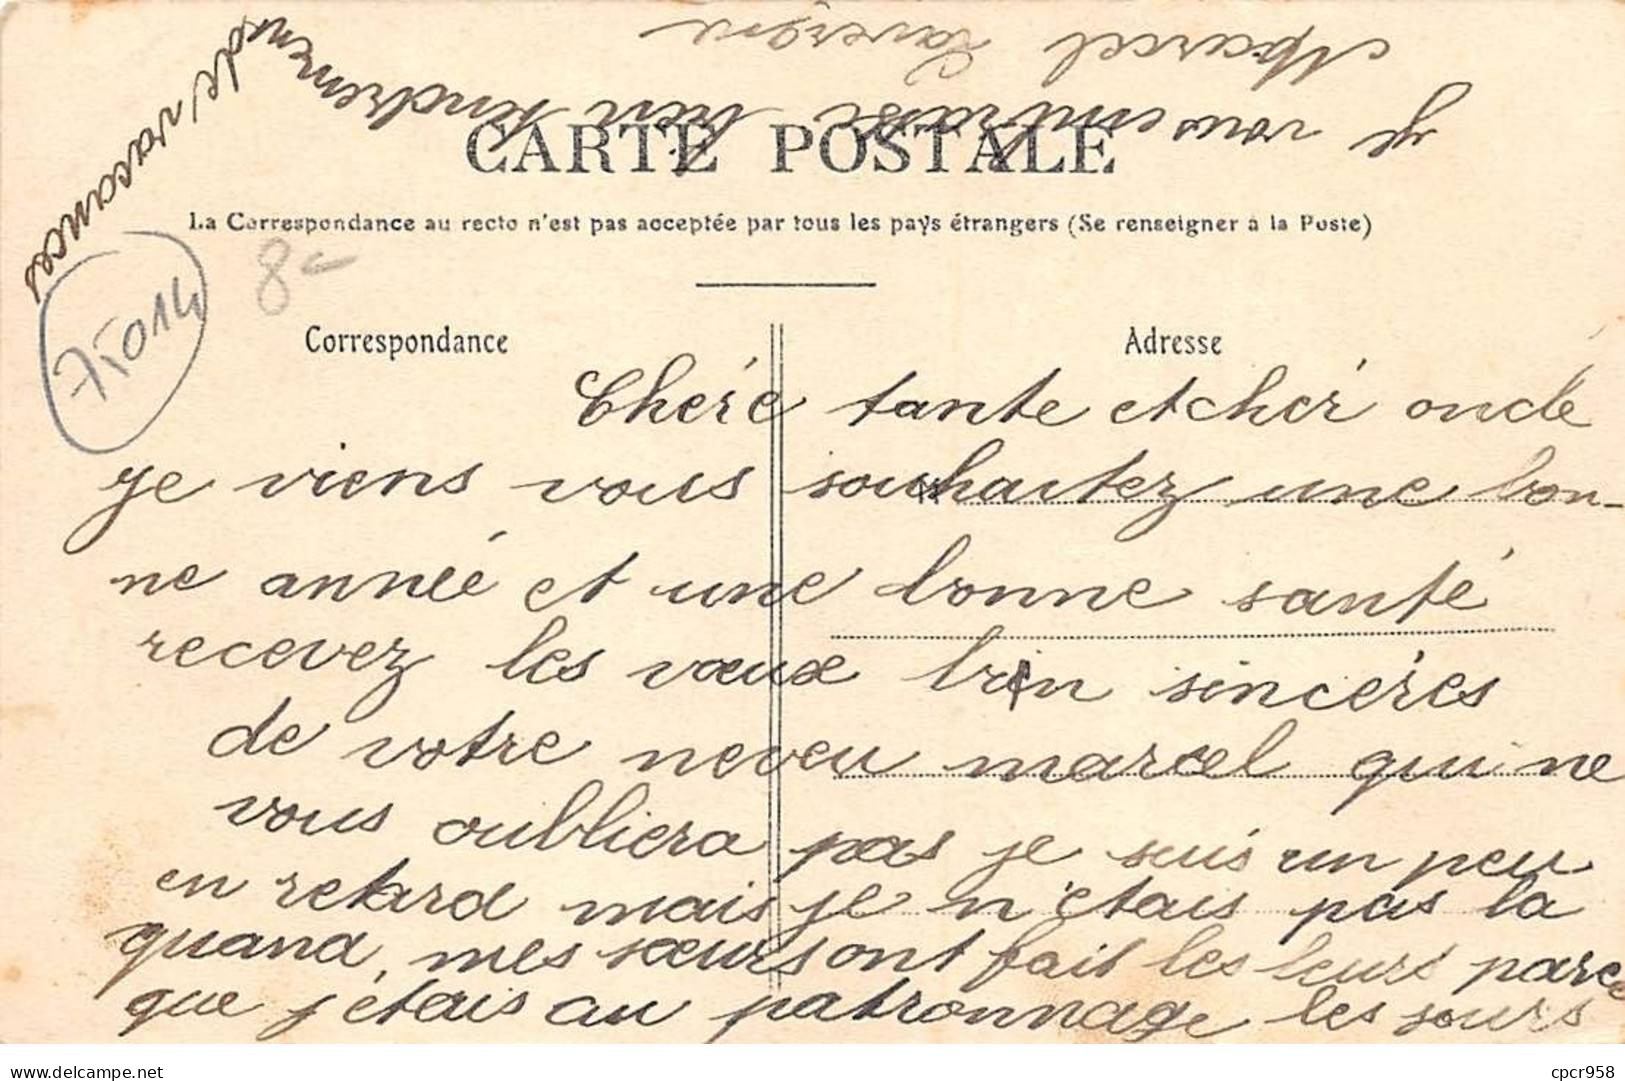 CARTE POSTALE
La Correspondance au recto n'est pas acceptée par tous les pays étrangers (Se renseigner à la Poste)
Correspondance
Adresse
75014
8
Cheré tante et cher oncle
je viens vous souhaitez une bon-
ne année et une bonne santé
recevez les vœux bien sincères
de votre neveu marcel qui ne
vous oubliera pas je suis un peu
en retard mais je n'étais pas la
quand, mes sœurs ont fait les leurs parce
que j'étais au patronnage les jours
de vacances
je vous embrasse bien tendrement
Marcel Lavergne
cpcr958